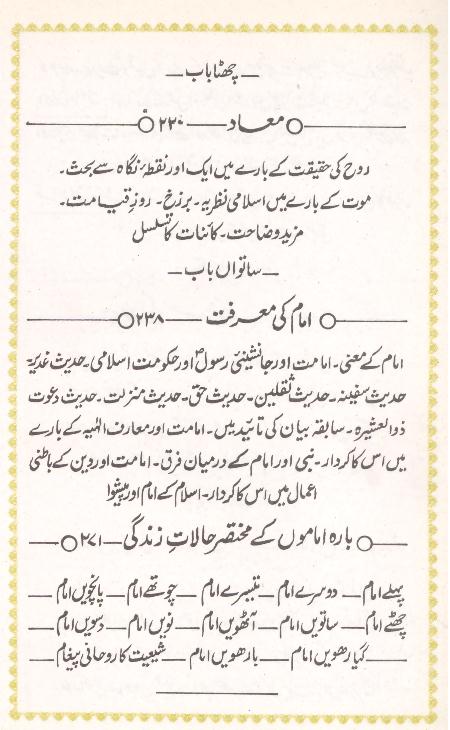 چھٹا باب
معاد ۲۲۰
روح کی حقیقت کے بارے میں ایک اور نقطۂ نگاہ سے بحث۔
موت کے بارے میں اسلامی نظریہ۔ برزخ۔ روزِ قیامت۔
مزید وضاحت۔ کائنات کا تسلسل
ساتواں باب
امام کی معرفت ۲۳۸
امام کے معنی۔ امامت اور جانشینیٔ رسولؐ اور حکومت اسلامی۔ حدیث غدیر۔
حدیث سفینہ۔ حدیث ثقلین۔ حدیث حق۔ حدیث منزلت۔ حدیث دعوت
ذوالعشیرہ۔ سابقہ بیان کی تائید میں۔ امامت اور معارف الٰہیہ کے بارے
میں اس کا کردار۔ نبی اور امام کے درمیان فرق۔ امامت اور دین کے باطنی
اعمال میں اس کا کردار۔ اسلام کے امام اور پیشوا
بارہ اماموں کے مختصر حالاتِ زندگی ۲۷۱
پہلے امام دوسرے امام تیسرے امام چوتھے امام پانچویں امام
چھٹے امام ساتویں امام آٹھویں امام نویں امام دسویں امام
گیارھویں امام بارھویں امام شیعیت کا روحانی پیغام